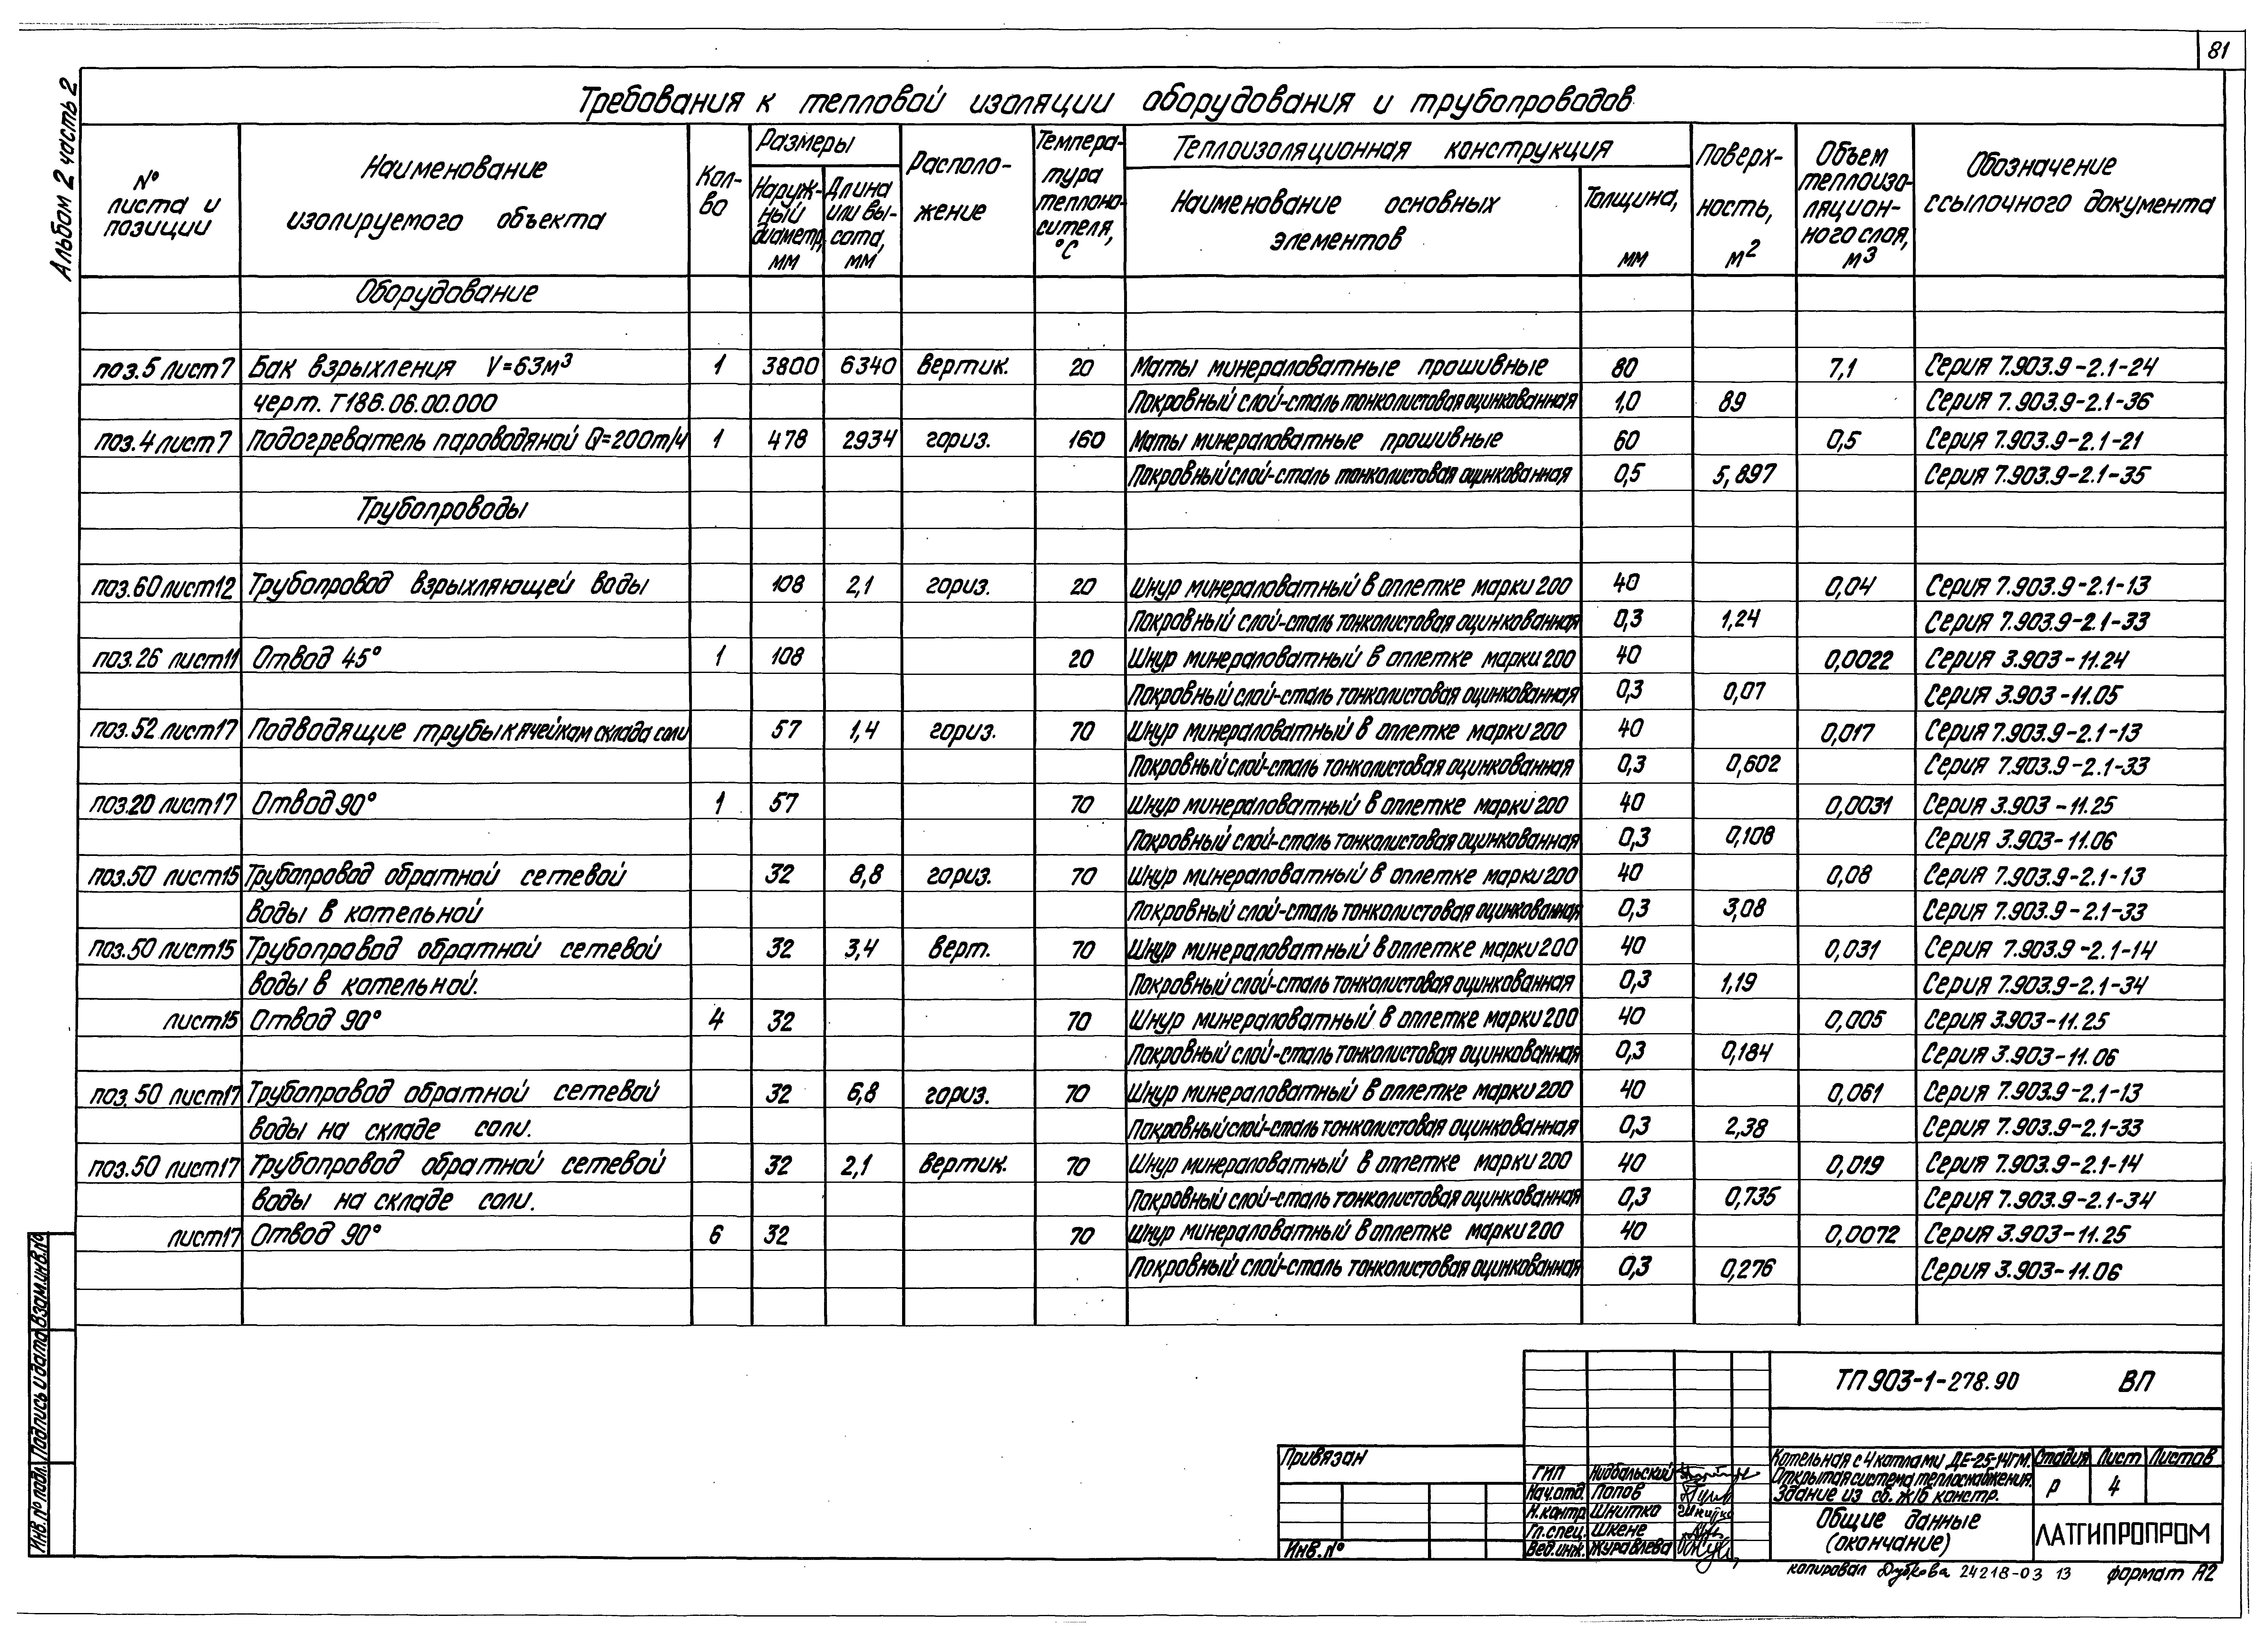 81
Альбом 2 часть 2
Требования к тепловой изоляции оборудования и трубопроводов
№ листа и позиции
Наименование изолируемого объекта
Кол-во
Размеры
Наружный диаметр, мм
Длина или высота, мм
Расположение
Температура теплоносителя, °С
Теплоизоляционная конструкция
Наименование основных элементов
Толщина, мм
Поверхность, м2
Объем теплоизоляционного слоя, м3
Обозначение ссылочного документа
Оборудование
поз.5 лист7 Бак взрыхления V=63м³ 1 3800 6340 вертик. 20 Маты минераловатные прошивные 80 7,1 Серия 7.903.9-2.1-24
черт. Т186.06.00.000 Покровный слой-сталь тонколистовая оцинкованная 1,0 89 Серия 7.903.9-2.1-36
поз.4 лист7 Подогреватель пароводяной Q=200т/ч 1 478 2934 гориз. 160 Маты минераловатные прошивные 60 0,5 Серия 7.903.9-2.1-21
Покровный слой-сталь тонколистовая оцинкованная 0,5 5,897 Серия 7.903.9-2.1-35
Трубопроводы
поз.60 лист12 Трубопровод взрыхляющей воды 108 2,1 гориз. 20 Шнур минераловатный в оплетке марки 200 40 0,04 Серия 7.903.9-2.1-13
Покровный слой-сталь тонколистовая оцинкованная 0,3 1,24 Серия 7.903.9-2.1-33
поз.26 лист11 Отвод 45° 1 108 20 Шнур минераловатный в оплетке марки 200 40 0,0022 Серия 3.903-11.24
Покровный слой-сталь тонколистовая оцинкованная 0,3 0,07 Серия 3.903-11.05
поз.52 лист17 Подводящие трубы к ячейкам склада соли 57 1,4 гориз. 70 Шнур минераловатный в оплетке марки 200 40 0,017 Серия 7.903.9-2.1-13
Покровный слой-сталь тонколистовая оцинкованная 0,3 0,602 Серия 7.903.9-2.1-33
поз.20 лист17 Отвод 90° 1 57 70 Шнур минераловатный в оплетке марки 200 40 0,0031 Серия 3.903-11.25
Покровный слой-сталь тонколистовая оцинкованная 0,3 0,108 Серия 3.903-11.06
поз.50 лист15 Трубопровод обратной сетевой 32 8,8 гориз. 70 Шнур минераловатный в оплетке марки 200 40 0,08 Серия 7.903.9-2.1-13
воды в котельной Покровный слой-сталь тонколистовая оцинкованная 0,3 3,08 Серия 7.903.9-2.1-33
поз.50 лист15 Трубопровод обратной сетевой 32 3,4 верт. 70 Шнур минераловатный в оплетке марки 200 40 0,031 Серия 7.903.9-2.1-14
воды в котельной. Покровный слой-сталь тонколистовая оцинкованная 0,3 1,19 Серия 7.903.9-2.1-34
лист15 Отвод 90° 4 32 70 Шнур минераловатный в оплетке марки 200 40 0,005 Серия 3.903-11.25
Покровный слой-сталь тонколистовая оцинкованная 0,3 0,184 Серия 3.903-11.06
поз.50 лист17 Трубопровод обратной сетевой 32 6,8 гориз. 70 Шнур минераловатный в оплетке марки 200 40 0,061 Серия 7.903.9-2.1-13
воды на складе соли. Покровный слой-сталь тонколистовая оцинкованная 0,3 2,38 Серия 7.903.9-2.1-33
поз.50 лист17 Трубопровод обратной сетевой 32 2,1 вертик. 70 Шнур минераловатный в оплетке марки 200 40 0,019 Серия 7.903.9-2.1-14
воды на складе соли. Покровный слой-сталь тонколистовая оцинкованная 0,3 0,735 Серия 7.903.9-2.1-34
лист17 Отвод 90° 6 32 70 Шнур минераловатный в оплетке марки 200 40 0,0072 Серия 3.903-11.25
Покровный слой-сталь тонколистовая оцинкованная 0,3 0,276 Серия 3.903-11.06
Инв.№ подл. Подпись и дата Взам.инв.№
ТП 903-1-278.90 ВП
Привязан
Инв.№
ГИП Нидбальский
Нач.отд. Попов
Н.контр Шнитко
Гл.спец. Шкене
Вед.инж. Журавлева
Котельная с 4 котлами ДЕ-25-14ГМ.
Открытая система теплоснабжения.
Здание из сб. ж/б констр.
Стадия Лист Листов
Р 4
Общие данные
(окончание)
ЛАТГИПРОПРОМ
копировал Дубкова 24218-03 13 формат А2